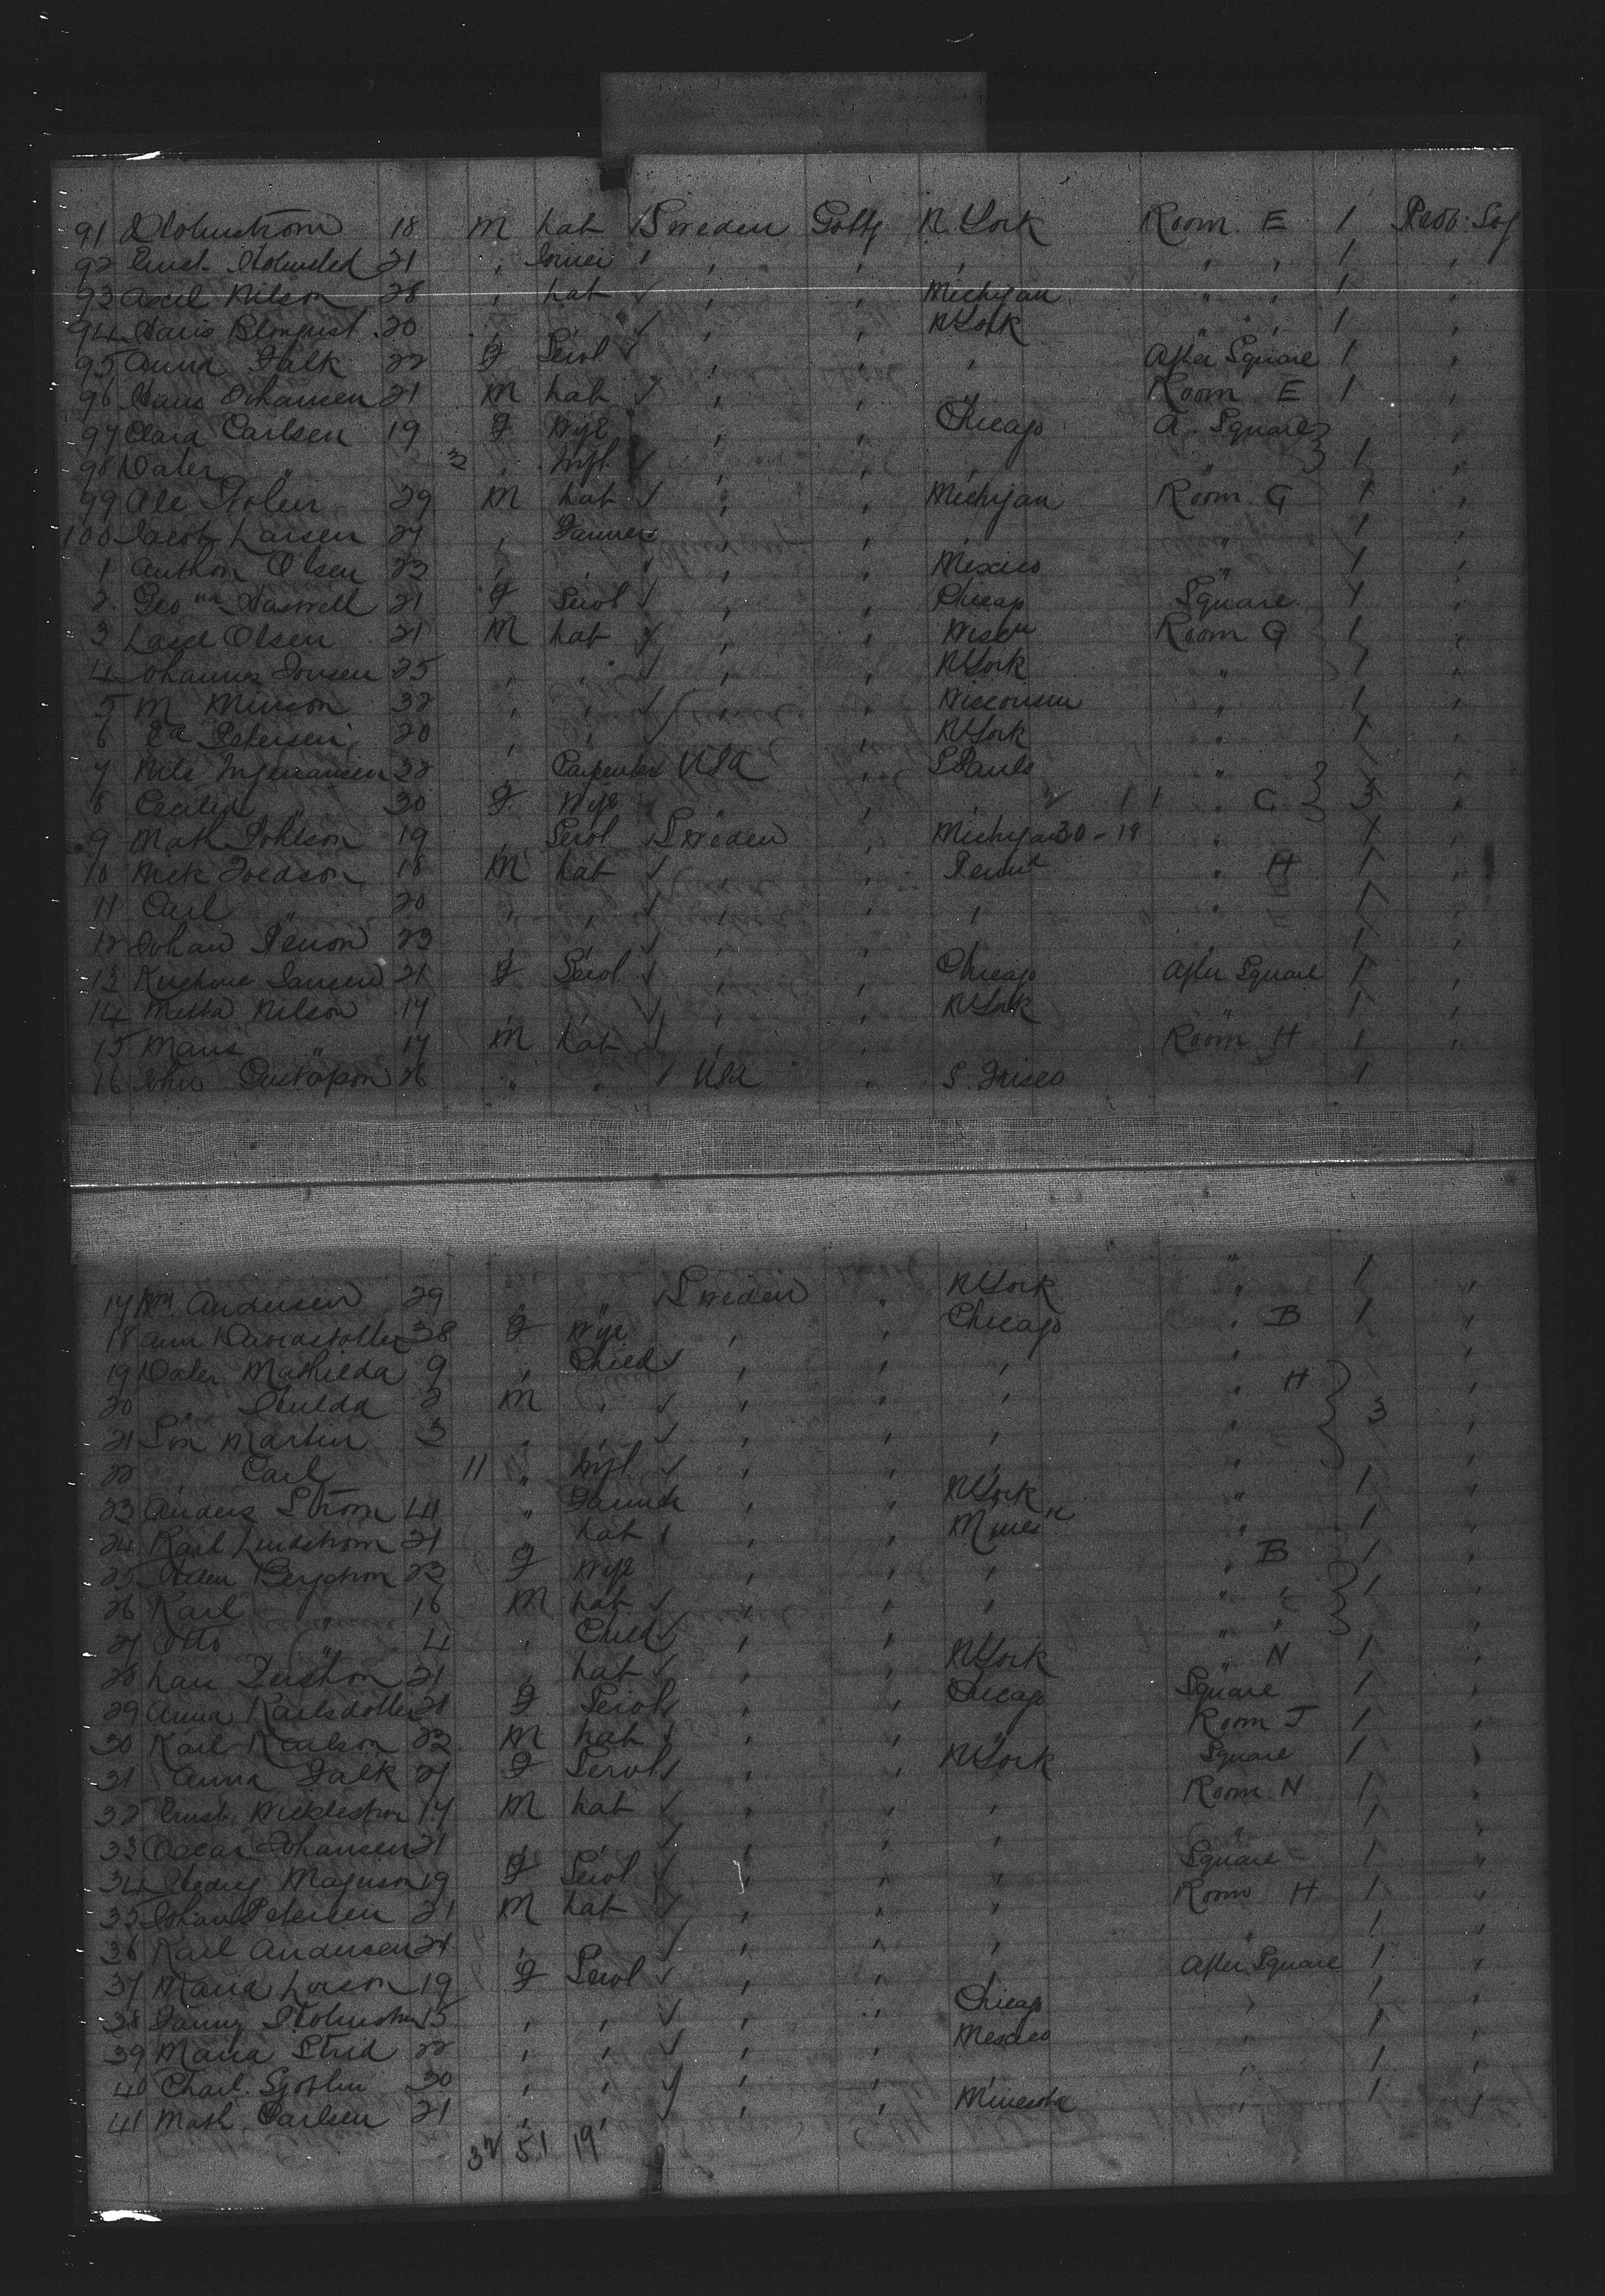 91 Holmstrom 18 M Lab Sweden Gottg N. York Room E 1 Prob. Soj
92 Ernst Holmsted 21 " " " " " " " 1 "
93 Axel Nilson 28 " Lab " " Michigan " " 1 "
94 Hans Blomquist 20 " " " " N York " " 1 "
95 Anna Falk 22 F Servt " " " After Square 1 "
96 Hans Johansen 21 M Lab " " " Room E 1 "
97 Clara Carlsen 19 F Wife " " Chicago A. Square "
98 Dater " 3 " Inft " " " " 1 "
99 Ole Stolen 29 M Lab " " Michigan Room G 1 "
100 Jacob Larsen 27 " Farmer " " " " 1 "
1 Anthon Olsen 23 " " " " Mexico " 1 "
2 Geo na Haswell 21 F Servt " " Chicago Square 1 "
3 Lasse Olsen 21 M Lab " " Wiscn Room G 1 "
4 Johannes Jonsen 25 " " " " N York " 1 "
5 M 32 " " " " Wisconsin " 1 "
6 Ed Petersen 20 " " " " N York " 1 "
7 Nils 32 " Carpenter USA " S Pauls "
8 Cecilia " 30 F Wife " " " 11 " C 3 "
9 Math 19 " Servt Sweden " Michigan 30-19 " 1 "
10 Nick 18 M Lab " " " H 1 "
11 Carl " 20 " " " " " " 1 "
12 Johan Person 23 " " " " " " 1 "
13 Jansen 21 F Servt " " Chicago After Square 1 "
14 Metta Nilson 17 " " " " N York " 1 "
15 Mans " 17 M Lab " " " Room H 1 "
16 John Gustafson 26 " " USA " S. Frisco 1
17 Wm Andersen 29 " " Sweden " N York " 1 "
18 Ann 38 F Wife " " Chicago " B 1 "
19 Dater Mathilda 9 " Child " " " " "
20 " Hulda 2 M " " " " " H 3 "
21 Son Martin 3 " " " " " " "
22 " Carl 11 " Inft " " " " "
23 Anders Strom 41 " Farmer " " N York " 1 "
24 Karl Lindstrom 21 " Lab " " " 1 "
25 Ellen Bergstrom 23 F Wife " " " " B 1 "
26 Karl " 16 M Lab " " " " " 1 "
27 Otto " 4 " Child " " " " " "
28 Lars 21 " Lab " " N York " N 1 "
29 Anna Karlsdotter 21 F Servt " " Chicago Square 1 "
30 Karl Karlson 23 M Lab " " " Room J 1 "
31 Anna Falk 27 F Servt " " N York Square 1 "
32 Ernst 17 M Lab " " " Room N 1 "
33 Oscar Johansen 21 " " " " " " 1 "
34 Hedvig Magnuson 19 F Servt " " " Square 1 "
35 Johan Petersen 21 M Lab " " " Room H 1 "
36 Karl Andersen 21 " " " " " " 1 "
37 Maria 19 F Servt " " " After Square 1 "
38 Fanny 15 " " " " Chicago " 1 "
39 Maria Strid 22 " " " " Mexico " 1 "
40 Charl. 30 " " " " " " 1 "
41 Math Carlsen 21 " " " " Minesota " 1 "
32 51 19